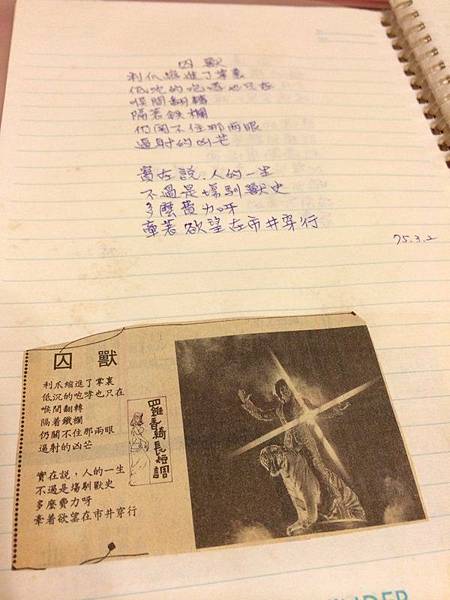 囚獸
利爪縮進了掌裏
低吠的咆哮也只在
喉間翻轉
隔著鉄欄
仍関不住那両眼
逼射的凶芒
實在説．人的一生
不過是場馴獸史
多麼費力呀
牽著欲望在市井穿行
75.3.2
囚獸
利爪縮進了掌裏
低沉的咆哮也只在
喉間翻轉
隔著鐵欄
仍關不住那兩眼
逼射的凶芒
實在説，人的一生
不過是場馴獸史
多麼費力呀
牽著欲望在市井穿行